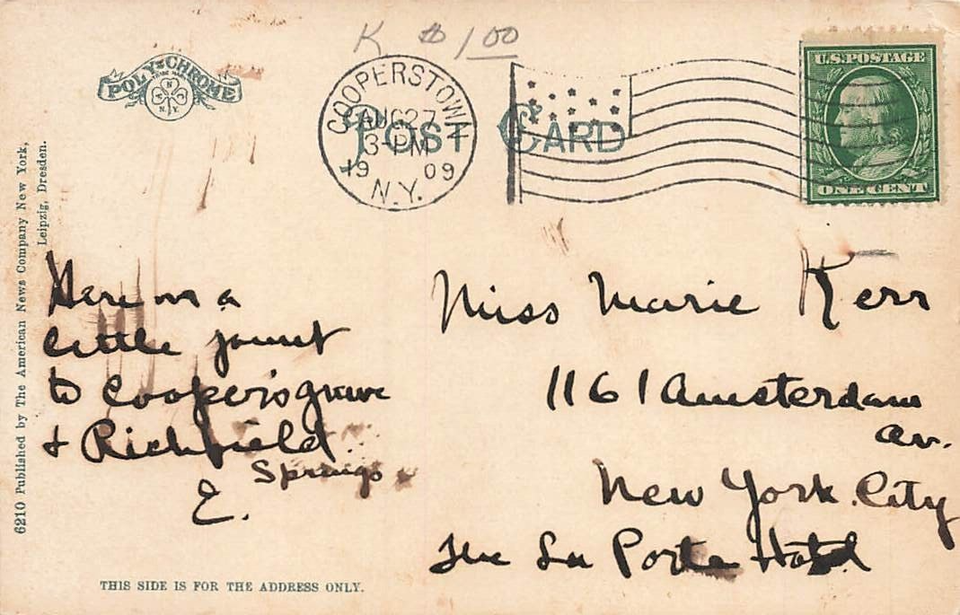 K $ 1.00
POLY-CHROME
TRADE MARK
A
N
N.Y.
COOPERSTOWN
AUG 27
3-PM
19 09
N.Y.
POST CARD
U.S. POSTAGE
ONE CENT
6210 Published by The American News Company New York,
Leipzig, Dresden.
Here on a
little jaunt
to Cooper's grave
& Richfield
Springs
E.
Miss Marie Kerr
1161 Amsterdam
Av.
New York City
The La Porte Hotel
THIS SIDE IS FOR THE ADDRESS ONLY.